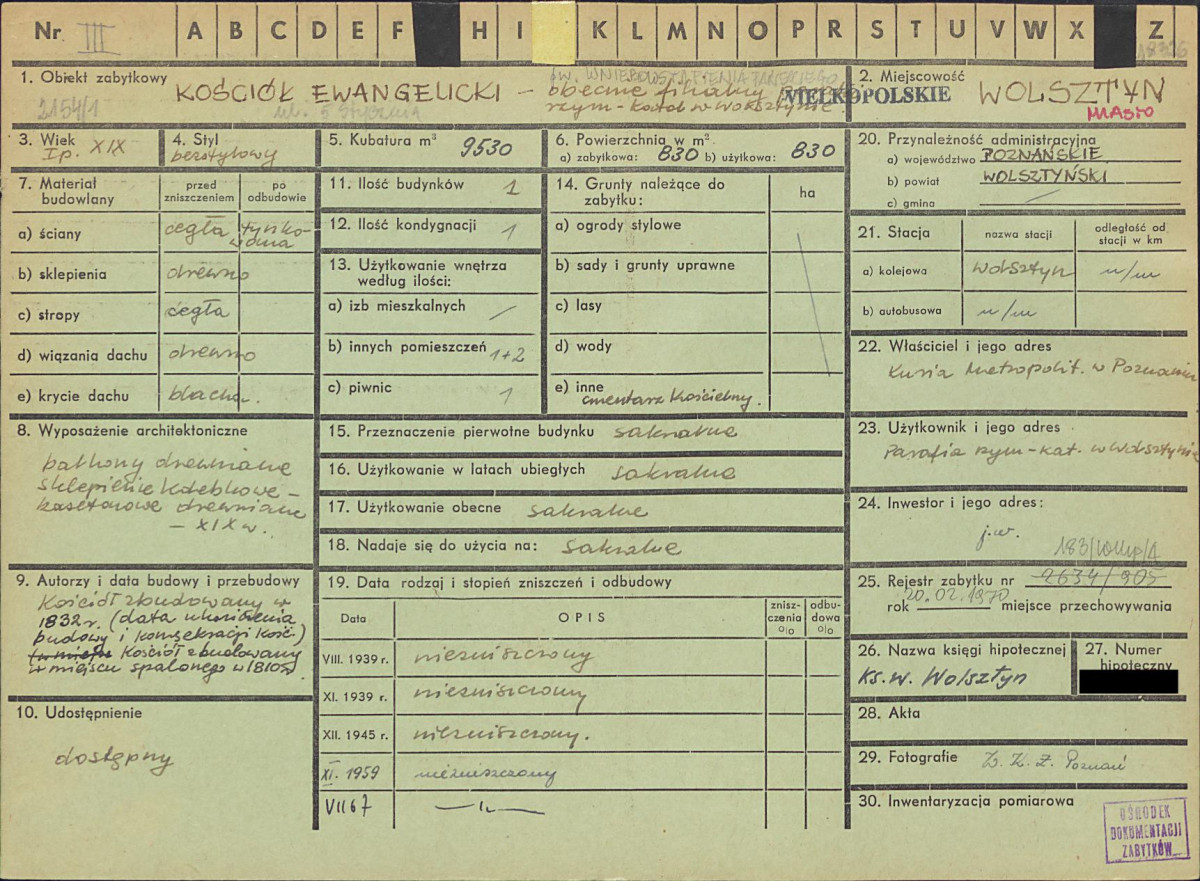 Nr III A B C D E F H I K L M N O P R S T U V W X Z
1. Obiekt zabytkowy
2154/1
KOŚCIÓŁ EWANGELICKI –
św. WNIEBOWSTĄPIENIA PAŃSKIEGO
obecnie filialny
rzym-katol w Wolsztynie.
ul. 5 Stycznia
2. Miejscowość
WIELKOPOLSKIE
WOLSZTYN
MIASTO
3. Wiek
I p. XIX
4. Styl
bezstylowy
5. Kubatura m³ 9530
6. Powierzchnia w m²
a) zabytkowa: 830 b) użytkowa: 830
20. Przynależność administracyjna
a) województwo POZNAŃSKIE
b) powiat WOLSZTYŃSKI
c) gmina —
7. Materiał budowlany
przed zniszczeniem
po odbudowie
a) ściany cegła tynkowana
b) sklepienia drewno
c) stropy cegła
d) wiązania dachu drewno
e) krycie dachu blacha.
11. Ilość budynków 1
12. Ilość kondygnacji 1
13. Użytkowanie wnętrza
według ilości:
a) izb mieszkalnych /
b) innych pomieszczeń 1+2
c) piwnic 1
14. Grunty należące do
zabytku:
ha
a) ogrody stylowe
b) sady i grunty uprawne
c) lasy
d) wody
e) inne
cmentarz Kościelny.
21. Stacja
nazwa stacji
odległość od
stacji w km
a) kolejowa Wolsztyn n/m
b) autobusowa n/m
22. Właściciel i jego adres
Kuria Metropolit. w Poznaniu
8. Wyposażenie architektoniczne
balkony drewniane
sklepienie kolebkowe –
kasetonowe drewniane
– XIX w.
15. Przeznaczenie pierwotne budynku sakralne
16. Użytkowanie w latach ubiegłych sakralne
17. Użytkowanie obecne sakralne
18. Nadaje się do użycia na: sakralne
23. Użytkownik i jego adres
Parafia rzym-kat. w Wolsztynie
24. Inwestor i jego adres:
j.w.
183/Wlkp/A
25. Rejestr zabytku nr 2634/905
20.02.1970
rok miejsce przechowywania
9. Autorzy i data budowy i przebudowy
Kościół zbudowany w
1832 r. (data ukończenia
budowy i konsekracji Kość.)
Kościół zbudowany
w miejscu spalonego w 1810 r.
19. Data rodzaj i stopień zniszczeń i odbudowy
Data
OPIS
znisz-
czenia
%
odbu-
dowa
%
VIII. 1939 r. niezniszczony
XI. 1939 r. niezniszczony
XII. 1945 r. niezniszczony.
XI. 1959 niezniszczony
VII 67 —„—
26. Nazwa księgi hipotecznej
Ks. w. Wolsztyn
27. Numer
hipoteczny
10. Udostępnienie
dostępny
28. Akta
29. Fotografie W. K. Z. Poznań
30. Inwentaryzacja pomiarowa
OŚRODEK
DOKUMENTACJI
ZABYTKÓW